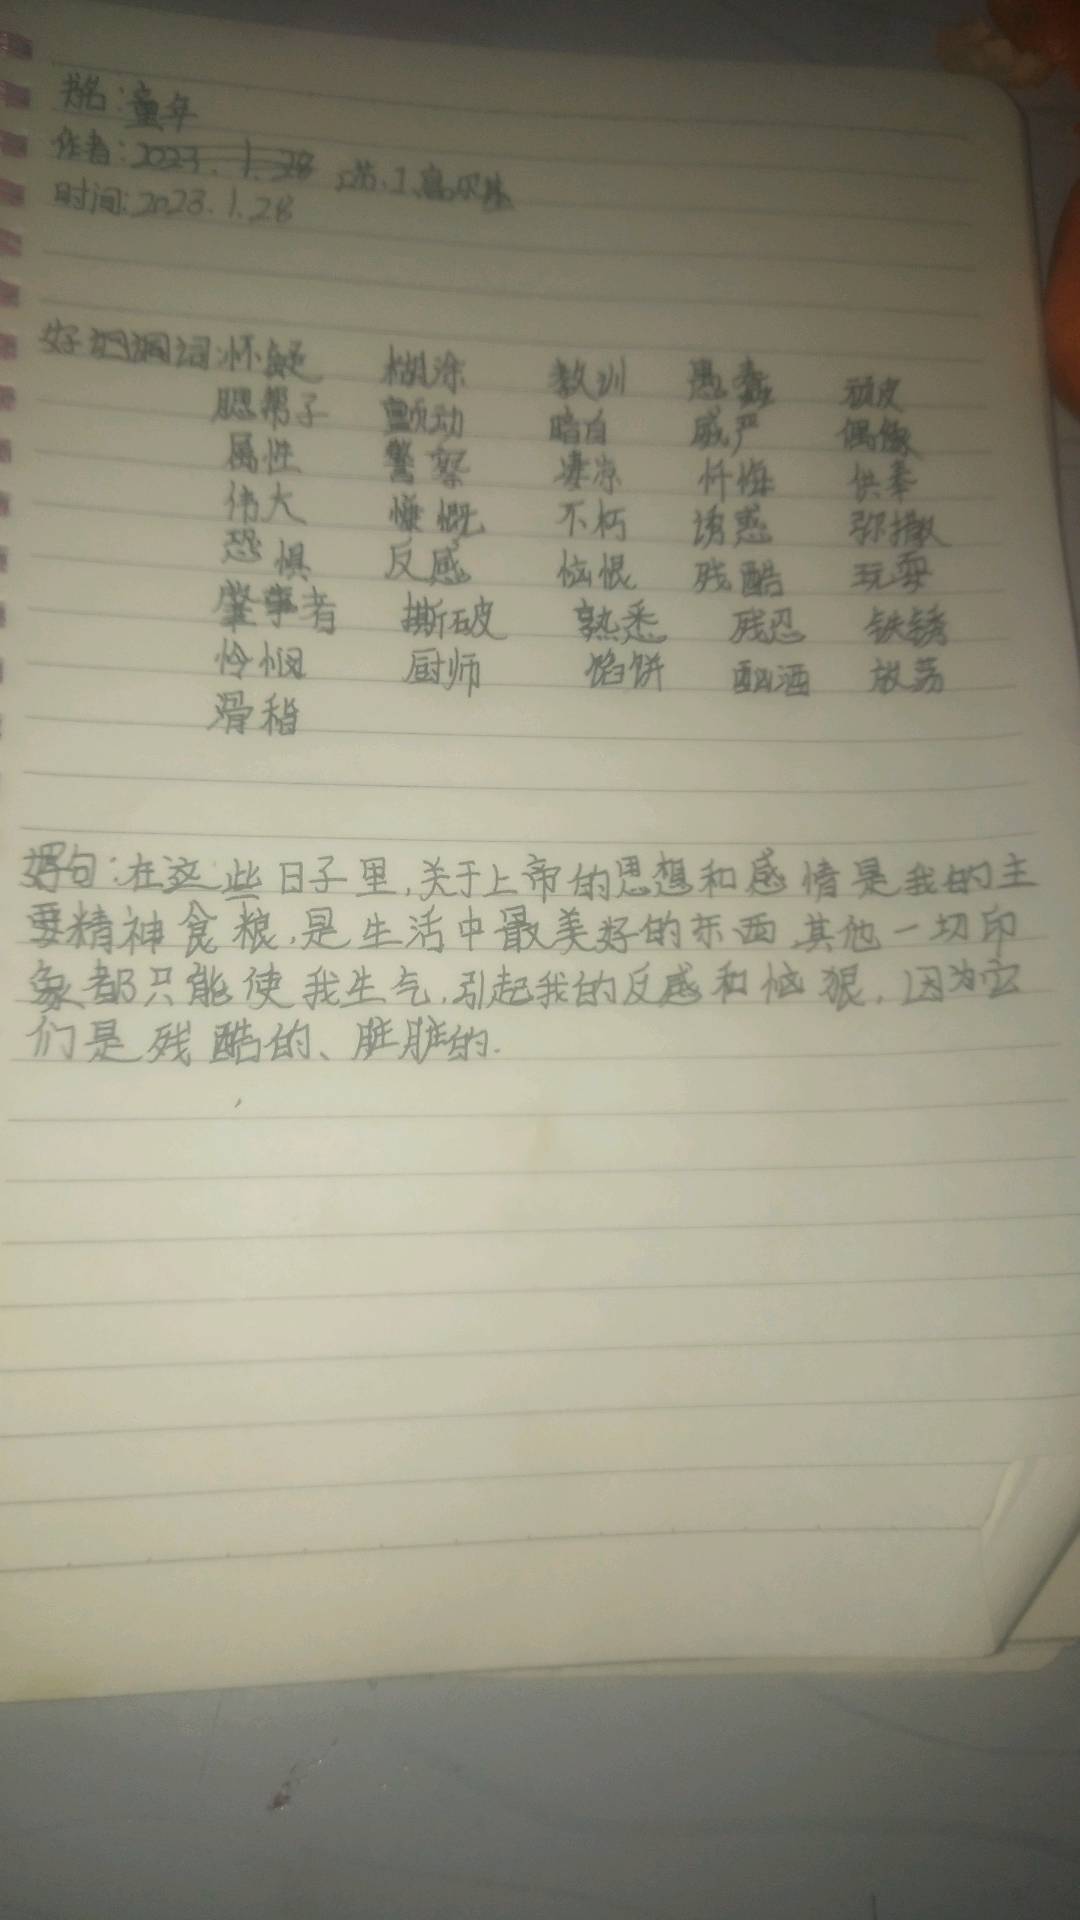 书名:童年
作者:2023.1.28 [苏].高尔基
时间:2023.1.28
好词:怀疑 糊涂 教训 愚蠢 顽皮
腮帮子 颤动 暗自 威严 偶像
属性 警察 凄凉 忏悔 供奉
伟大 慷慨 不朽 诱惑 弥撒
恐惧 反感 恼恨 残酷 玩耍
肇事者 撕破 熟悉 残忍 铁锈
怜悯 厨师 馅饼 酗酒 放荡
滑稽
好句:在这些日子里,关于上帝的思想和感情是我的主
要精神食粮,是生活中最美好的东西,其他一切印
象都只能使我生气,引起我的反感和恼狠,因为它
们是残酷的、脏脏的.